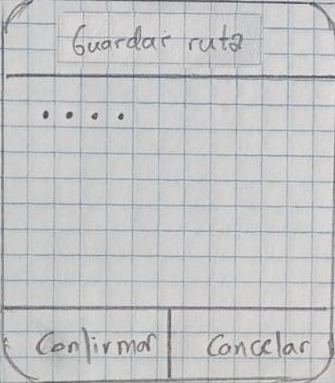 Guardar ruta
....
Confirmar
Cancelar